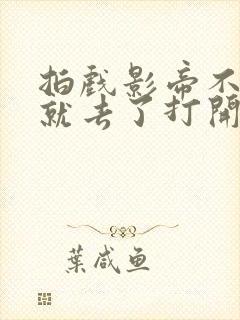 拍戲影帝不
就去了打開
葉咸魚